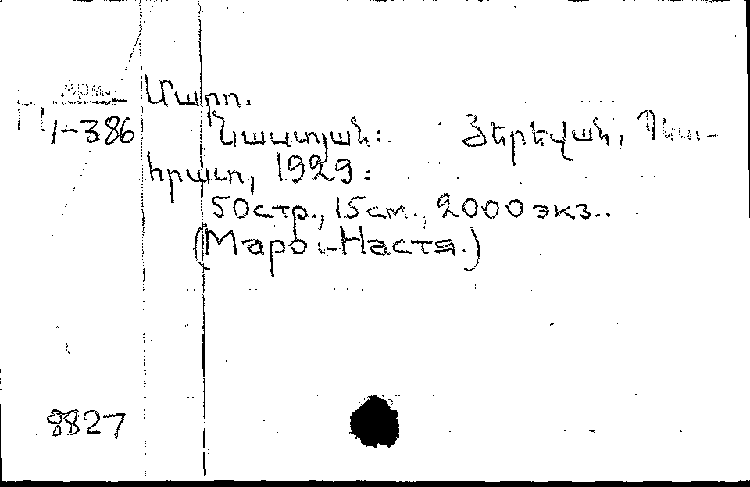 арм. Մարո.
1-386
Նաստյան: Յերեվան, Պետ-
հրատ, 1929:
50стр., 15см., 2000экз..
(Маро.-Настя.)
8827